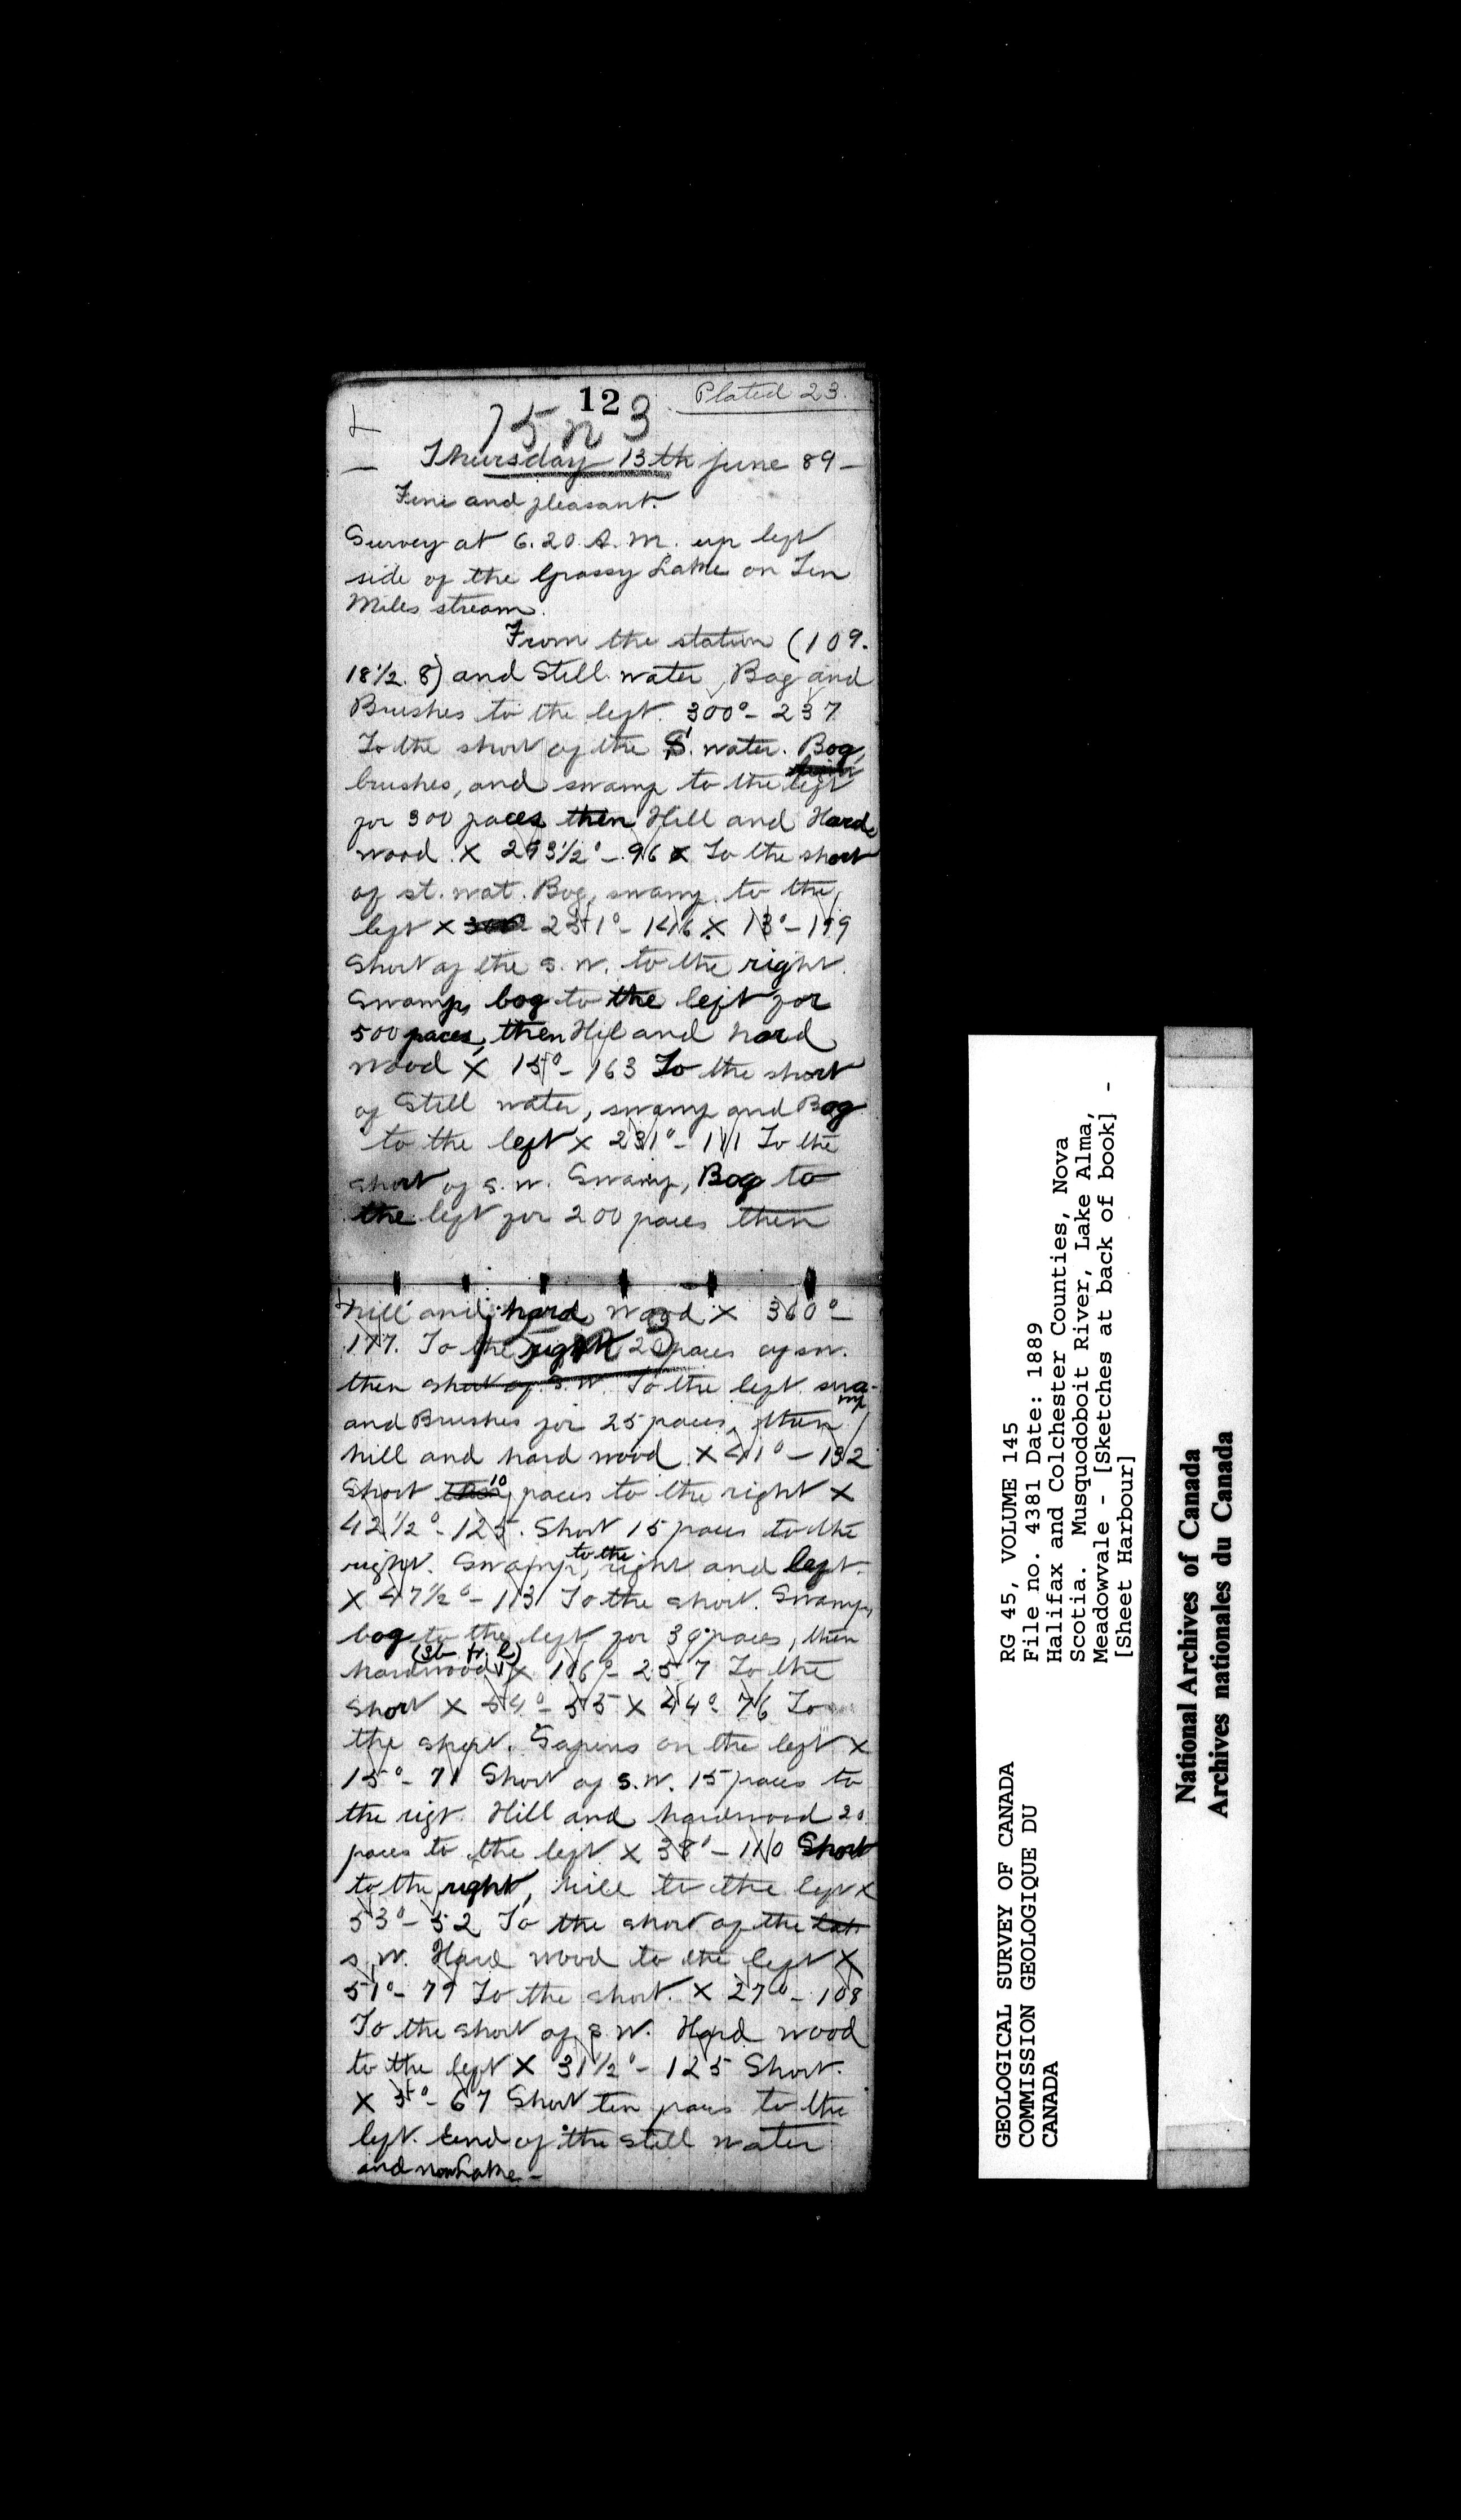 12
Plated 23.
15 n 3
Thursday 13th June 89 -
Fine and pleasant.
Survey at 6.20 A.M. up left
side of the Grassy Lake on Ten
Miles stream.
From the station (109.
18 1/2. 8) and Still water, Bog and
Brushes to the left. 300° - 237
To the short of the S. water. Bog,
brushes, and swamp to the left
for 300 paces then Hill and Hard
wood. X 293 1/2° - 96 X To the short
of st. wat. Bog, swamp to the
left X 251° - 146 X 13° - 199
Short of the s. w. to the right.
Swamp, bog to the left for
500 paces, then Hil and hard
wood X 15° - 163 To the short
of Still water, swamp and Bog
to the left X 231° - 111 To the
short of s. w. Swamp, Bog to
the left for 200 paces then
hill and hard wood X 360° -
177. To the right 20 paces of sw.
then short of S. W. To the left swa-
mp
and Brushes for 25 paces, then
hill and hard wood. X 41° - 132
Short 10 paces to the right X
42 1/2° - 125. Short 15 paces to the
right. Swamp, to the right and left.
X 47 1/2° - 113 To the short. Swamp,
bog to the left for 30 paces, then
hardwood X 106° - 257 To the
short X 54° - 55 X 44° 76 To
the short. Sapins on the left X
15° - 71 Short of S.W. 15 paces to
the rigt. Hill and hardwood 20
paces to the left X 38° - 110 Short
to the right, hill to the left X
53° - 52 To the short of the
s. W. Hard wood to the left X
51° - 79 To the short. X 27° - 108
To the short of s. W. Hard wood
to the left X 31 1/2° - 125 Short.
X 5° - 67 Short ten paces to the
left. End of the still water
and now Lake -
GEOLOGICAL SURVEY OF CANADA
COMMISSION GEOLOGIQUE DU
CANADA
RG 45, VOLUME 145
File no. 4381 Date: 1889
Halifax and Colchester Counties, Nova
Scotia. Musquodoboit River, Lake Alma,
Meadowvale - [Sketches at back of book] -
[Sheet Harbour]
National Archives of Canada
Archives nationales du Canada